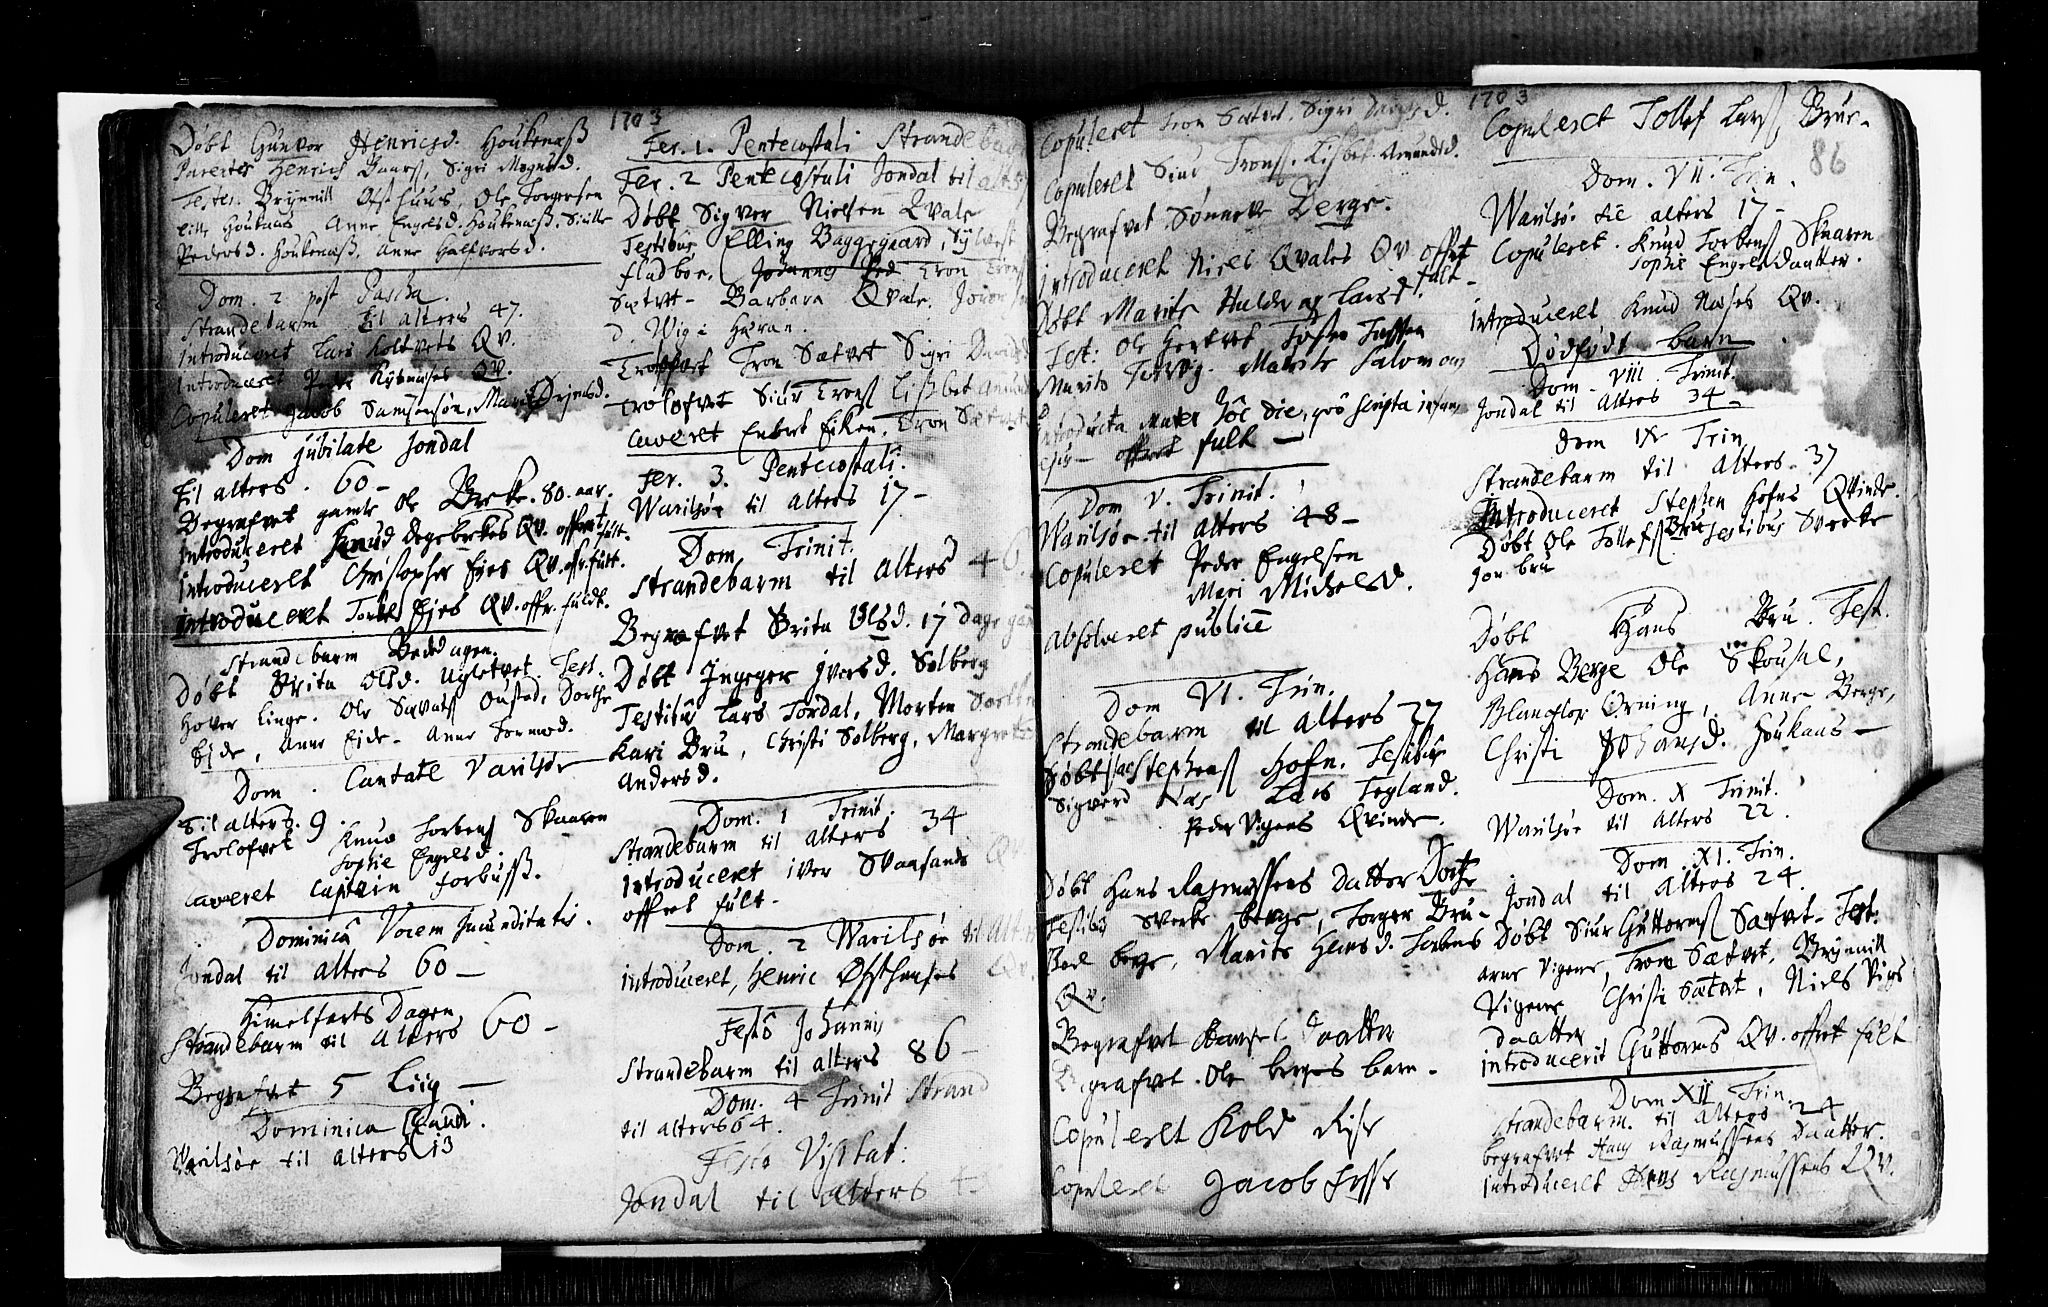 1703
Døbt Gunvor Henricsd. Houkenæss
Parentes Henrich Baars, Sigri Magnusd.
Testes. Brynnill Ofsthuus, Ole Torgersen
lille Houkenæs Anne Engelsd. Houkenæss, Sirille
Pedersd. Houkenæss, Anne Halfvorsd.
Dom. 2 post Pascha.
Strandebarm til alters 47.
Introduceret Lars Koltvets Qv.
Introduceret Peder Qv.
Copuleret Jacob Samsonsøn, Marit
Dom Jubilate Jondal
til alters. 60 -
Begrafvet gamle Ole Berke. 80. aar.
Introduceret Knud Degeberkes Qv. offret fult.
Introduceret Christopher Eies Qv. offr. fult.
Introduceret Torkel Ejes Qv. offr. fuldt.
Strandebarm Bededagen.
Døbt Brita Olsd. Ugletvet. Test.
Hover Linge. Ole Ousted, Dorthe
Eide, Anne Eide - Anne Tormod.
Dom. Cantate Varilsøe
til alters. 9.
Trolofvet Knud Torbens Skaaren
Sophie Engelsd.
Caveret Captein Forbuss.
Dominica Vocem Jucunditatis.
Jondal til alters 60 -
Himelfarts Dagen
Strandebarm til alters 60 -
Begrafvet 5 Liig -
Dominica Exaudi.
Warilsøe til alters 13
Fer. 1. Pentecostali Strandebarm
Fer. 2 Pentecostali Jondal til alters
Døbt Sigver Nielsen Qvale
Testibus Elling Baggegaard, Sylvest
Fladbøe. Johannes Tron
Sætvet - Barbara Qvale.
d. Wig i Haran.
Trolofvet Tron Sætvet Sigri
Trolofvet Siur Trons Lisbet
Caveret Enbert Eiken, Tron Sætvet
Fer. 3. Pentecostali.
Warilsøe til alters 17 -
Dom. Trinit.
Strandebarm til alters 4
Begrafvet Brita Olsd. 17 dage
Døbt Ingeger Iversd. Solberg
Testibus Lars Tordal, Morten
Kari Bru, Christi Solberg, Margrete
Andersd.
Dom. 1 Trinit.
Strandebarm til alters 34
Introduceret Iver Svansands Qv.
offret fult -
Dom. 2 Warilsøe til Alters
Introduceret, Henric Ofsthuses Qv.
Festo Johannis
Strandebarm til alters 86 -
Dom. 4 Trinit Strand
til alters 64.
Festo Visitat:
Jondal til alters
1703
86
Copuleret Tron Sætvet, Sigri
Copuleret Siur Trons. Lisbet Amundsd.
Begrafvet Sønneve Berge.
Introduceret Niels Qvales Qv offret
fult -
Døbt Marite Halde Larsd.
Test: Ole
Marite Torvig. Marite Salomons
Introducta Mater
offret fult -
Dom V. Trinit.
Warilsøe til alters 48 -
Copuleret Peder Engelsen
Mari Michelsd.
Absolveret publicè
Dom VI. Trin.
Strandebarm til alters 27
Døbt Stephens Hofn. Testibus
Sigverd Næs Lars Tegland.
Peder Vigens Qvinde.
Døbt Hans Rasmussens datter Dorthe
Testibus Sverke berge, Torger Bru -
Boel berge, Marite Hansd. Torbens
Qv.
Begrafvet Daatter
Begrafvet. Ole berges barn -
Copuleret Kold Rise
Copuleret Jacob
Copuleret Tollef Lars Brue -
Dom. VII. Trin.
Warilsøe til alters 17 -
Copuleret. Knud Torbens Skaaren
Sophie Engels Daatter.
Introduceret Knud Næses Qv.
Dødfødt barn
Dom. VIII. Trinit.
Jondal til alters 34 -
Dom IX Trin
Strandebarm til alters - 37
Introduceret Steffen Hofns Qvinde.
Døbt Ole Tollefs Bru Testibus Sverke
Jon bru
Døbt Hans Bru. Test.
Hans Berge Ole Skousæl,
Blancflor Ørning, Anne Berge,
Christi Johansd. Houkans -
Dom. X Trinit.
Warilsøe til alters 22.
Dom. XI. Trin.
Jondal til alters 24.
Døbt Siur Guttorms Sætvet - Test.
Arne Vigene, Tron Sætvet, Brynnill
Vigene, Christi Sætvet, Niels Vigs
daatter
Introducerit Guttorms Qv. offret fult
Dom XII Trin.
Strandebarm. til alters 24
begrafvet Hans Rasmussens Daatter.
Introduceret Hans Rasmussens Qv.